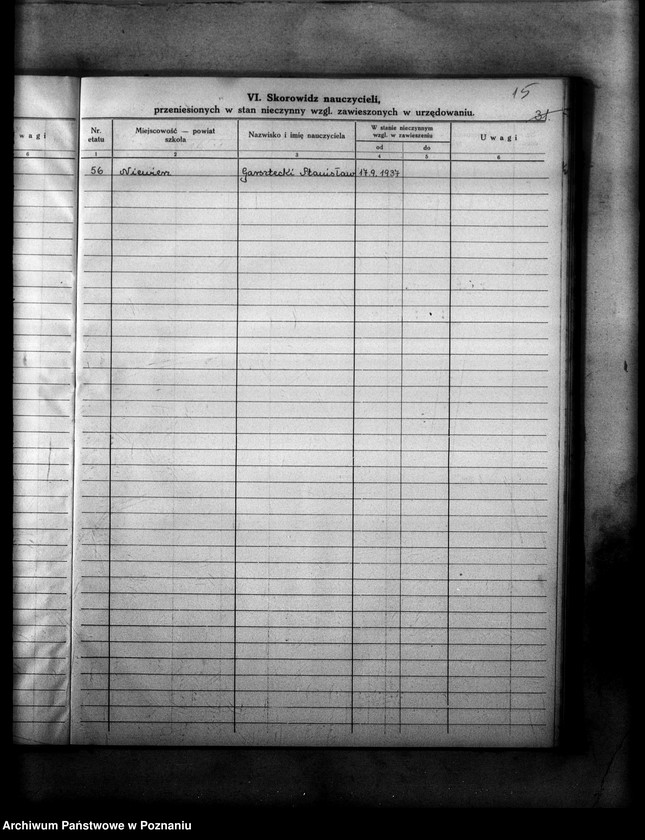 15
31.
VI. Skorowidz nauczycieli,
przeniesionych w stan nieczynny wzgl. zawieszonych w urzędowaniu.
wagi
Nr. etatu
Miejscowość — powiat szkoła
Nazwisko i imię nauczyciela
W stanie nieczynnym wzgl. w zawieszeniu
od
do
Uwagi
6
1
2
3
4
5
6
56 Niewierz Garsztecki Stanisław 17.9.1937
Archiwum Państwowe w Poznaniu